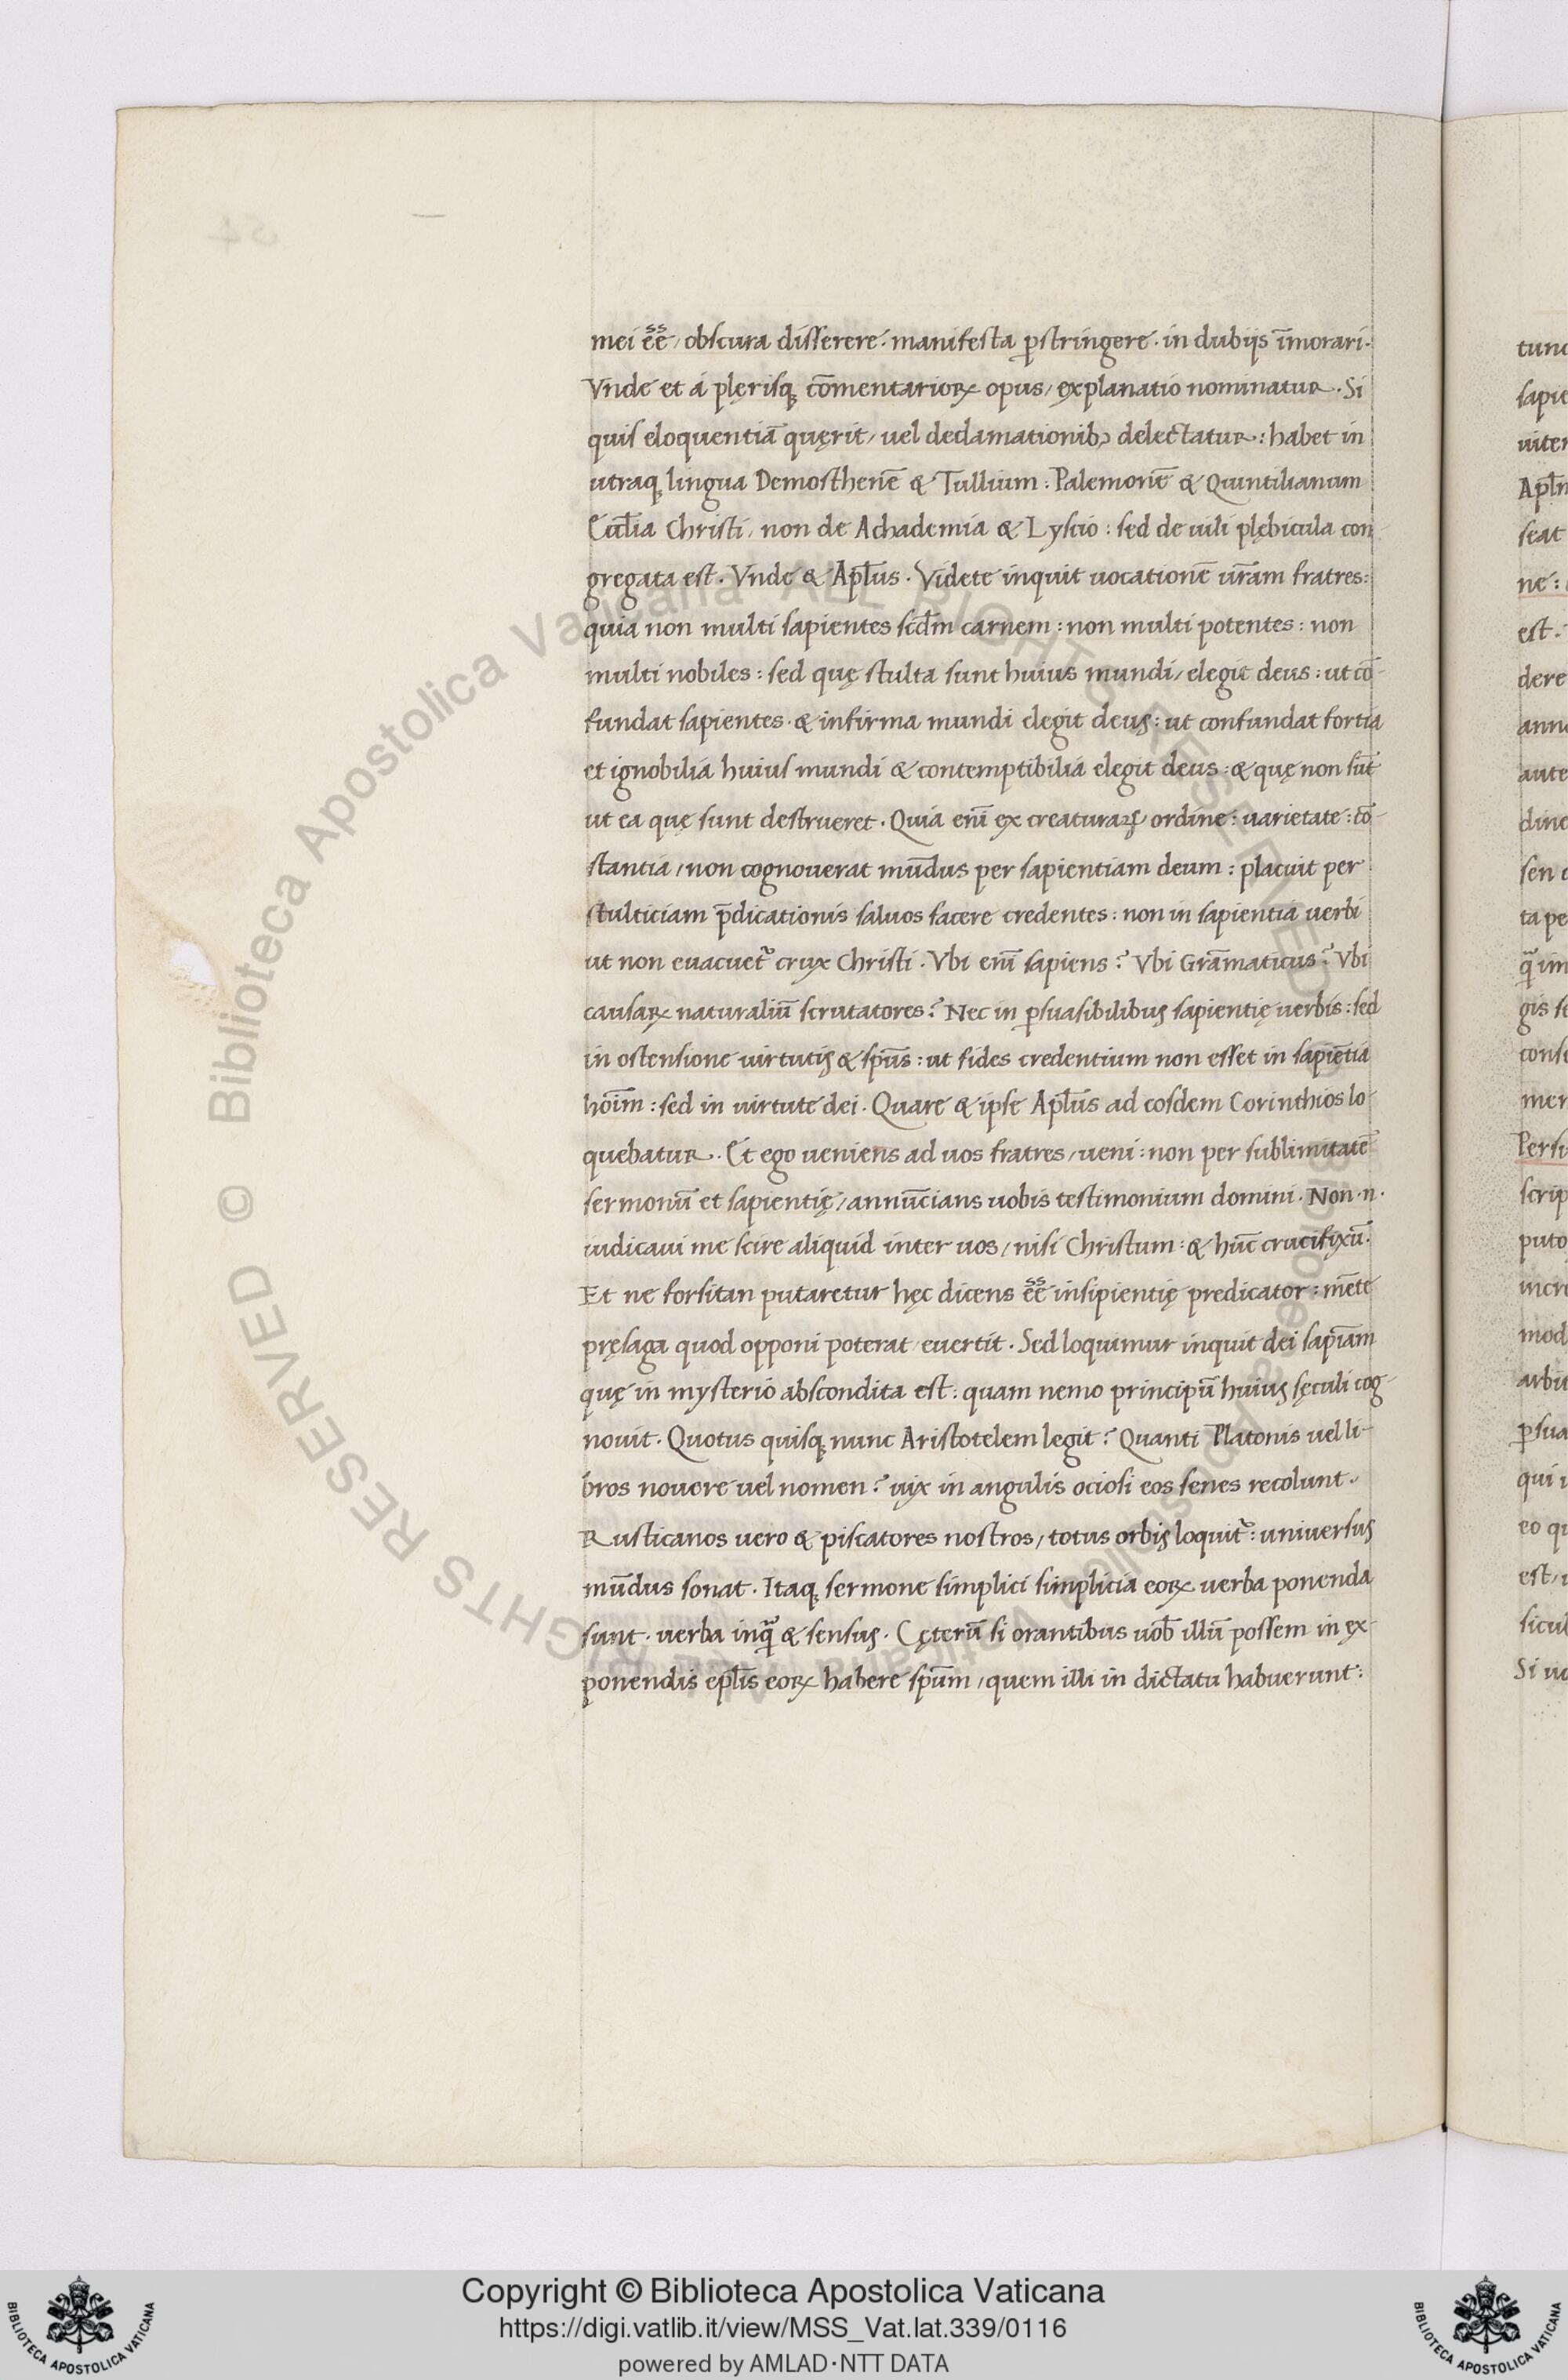 mei e̅e̅ / obscura disserere. manifesta ꝑstringere. in dubijs i̅morari.
Vnde et á plęrisqꝫ co̅mentarioꝝ opus / explanatio nominatur. Si
quis eloquentia̅ quęrit / uel declamationibꝫ delectatur : habet in
utraqꝫ lingua Demosthene̅ & Tullium : Palemone̅ & Quintilianum
Eccl̅ia Christi / non de Achademia & Lyscio : sed de uili plębicula con
gregata est. Vnde & Apl̅us. Videte inquit uocatione̅ ur̅am fratres :
quia non multi sapientes scd̅m carnem : non multi potentes : non
multi nobiles : sed quę stulta sunt huius mundi / elegit deus : ut co̅-
fundat sapientes. & infirma mundi elegit deus : ut confundat fortia
et ignobilia huius mundi & contemptibilia elegit deus : & quę non su̅t
ut ea quę sunt destrueret. Quia eni̅ ex creaturaꝝ ordine : uarietate : co̅-
stantia / non cognouerat mu̅dus per sapientiam deum : placuit per
stulticiam p̅dicationis saluos facere credentes : non in sapientia uerbi
ut non euacuet᷑ crux Christi. Vbi eni̅ sapiens ? Vbi Gra̅maticus ? Vbi
causaꝝ naturaliu̅ scrutatores ? Nec in ꝑsuasibilibus sapientię uerbis : sed
in ostensione uirtutis & sp̅us : ut fides credentium non esset in sapie̅tia
hoi̅m : sed in uirtute dei. Quare & ipse Apl̅us ad eosdem Corinthios lo-
quebatur. Et ego ueniens ad uos fratres / ueni : non per sublimitate̅
sermonu̅ et sapientię / annu̅cians uobis testimonium domini. Non .n.
iudicaui me scire aliquid inter uos / nisi Christum : & hu̅c crucifixu̅.
Et ne forsitan putaretur hęc dicens e̅e̅ insipientię predicator : me̅te
pręsaga quod opponi poterat euertit. Sed loquimur inquit dei sapi̅am
quę in mysterio abscondita est : quam nemo principu̅ huius sęculi cog-
nouit. Quotus quisqꝫ nunc Aristotelem legit ? Quanti Platonis uel li-
bros nouere uel nomen ? uix in angulis ociosi eos senes recolunt.
Rusticanos uero & piscatores nostros / totus orbis loquit᷑ : uniuersus
mu̅dus sonat. Itaqꝫ sermone simplici simplicia eoꝝ uerba ponenda
sunt. uerba inqua̅ & sensus. Cęteru̅ si orantibus uob̅ illu̅ possem in ex-
ponendis epl̅is eoꝝ habere sp̅um / quem illi in dictatu habuerunt :
© Biblioteca Apostolica Vaticana ALL RIGHTS RESERVED
Copyright © Biblioteca Apostolica Vaticana
https://digi.vatlib.it/view/MSS_Vat.lat.339/0116
powered by AMLAD·NTT DATA
BIBLIOTECA APOSTOLICA VATICANA
BIBLIOTECA APOSTOLICA VATICANA